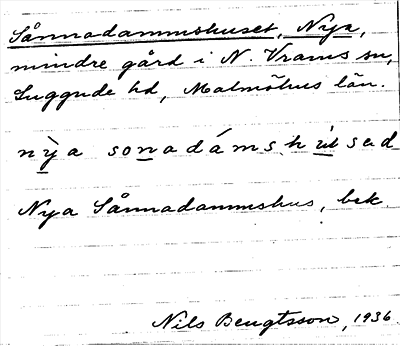 Sånnadammshuset, Nya,
mindre gård i N. Vrams sn,
Luggude hd, Malmöhus län.
nỳa sonadámshúsed
Nya Sånnadammshus, bek.
Nils Bengtsson, 1936